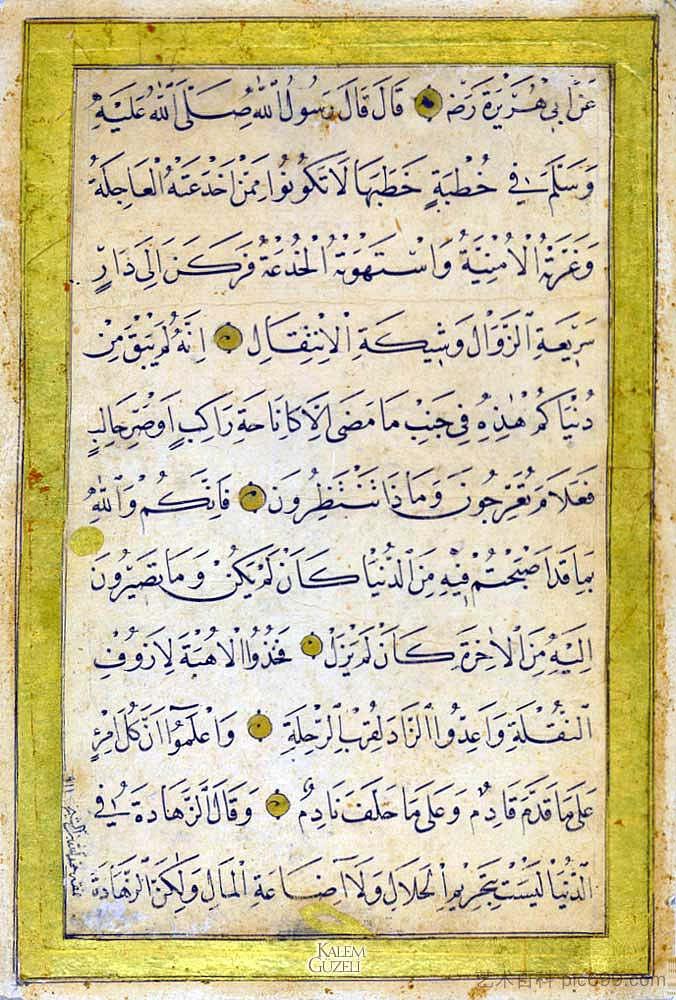 عَنْ اَبِي هُرَيْرَةَ رَضْ قَالَ قَالَ رَسُولُ اللّٰهِ صَلَّى اللّٰهُ عَلَيْهِ
وَسَلَّمَ فِي خُطْبَةٍ خَطَبَهَا لَا تَكُونُوا مِمَّنْ اَخْدَعَتْهُ الْعَاجِلَةُ
وَغَرَّتْهُ الْاُمْنِيَّةُ وَاسْتَهْوَتْهُ الْخُدْعَةُ فَرَكَنَ اِلَى دَارٍ
سَرِيعَةِ الزَّوَالِ وَشِيكَةِ الْاِنْتِقَالِ اِنَّهُ لَمْ يَبْقَ مِنْ
دُنْيَاكُمْ هٰذِهِ فِي جَنْبِ مَا مَضَى اِلَّا كَاِنَاخَةِ رَاكِبٍ اَوْ صَرِّ حَالِبٍ
فَعَلَامَ تَعْرُجُونَ وَمَاذَا تَنْتَظِرُونَ فَاِنَّكُمْ وَاللّٰهِ
بِمَا قَدْ اَصْبَحْتُمْ فِيهِ مِنَ الدُّنْيَا كَاَنْ لَمْ يَكُنْ وَمَا تَصِيرُونَ
اِلَيْهِ مِنَ الْاٰخِرَةِ كَاَنْ لَمْ يَزَلْ فَخُذُوا الْاُهْبَةَ لِاَزُوفِ
النُّقْلَةِ وَاَعِدُّوا الزَّادَ لِقُرْبِ الرِّحْلَةِ وَاعْلَمُوا اَنَّ كُلَّ امْرِئٍ
عَلَى مَا قَدَّمَ قَادِمٌ وَعَلَى مَا خَلَفَ نَادِمٌ وَقَالَ الزَّهَادَةُ فِي
الدُّنْيَا لَيْسَتْ بِتَحْرِيمِ الْحَلَالِ وَلَا اِضَاعَةِ الْمَالِ وَلٰكِنَّ الزَّهَادَةَ
KALEM
GÜZELİ
艺术百科 pic699.com